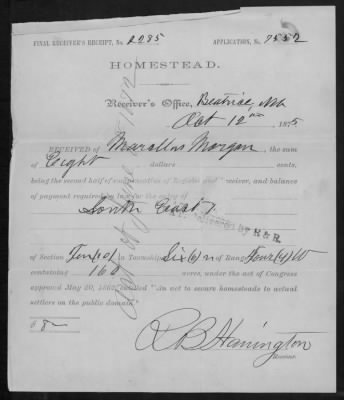 FINAL RECEIVER'S RECEIPT, No. 2235 APPLICATION, No. 7552
HOMESTEAD.
Receiver's Office, Beatrice, Neb
Oct 12th 1875
RECEIVED of Morgan, the sum
of Eight dollars cents,
being the second half of compensation of Register and Receiver, and balance
of payment required by law for the entry of
South East
of Section Ten (10) in Township Six (6) n of Range Four (4) W
containing 160 acres, under the act of Congress
approved May 20, 1862, entitled "An act to secure homesteads to actual
settlers on the public domain
$ 8
Receiver.